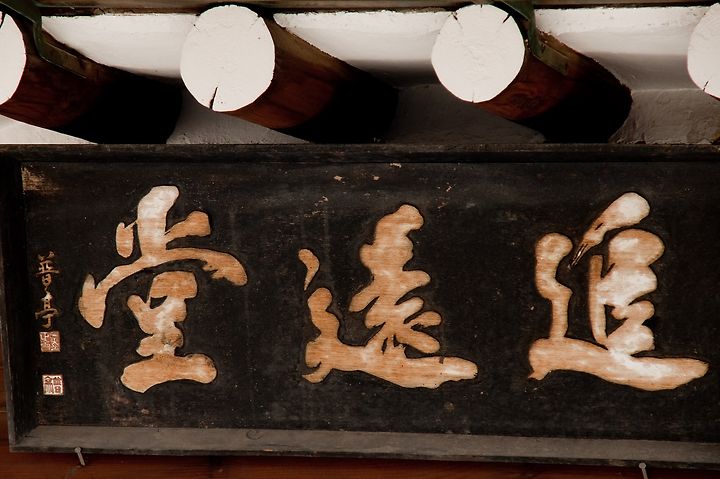 追遠堂
普亭